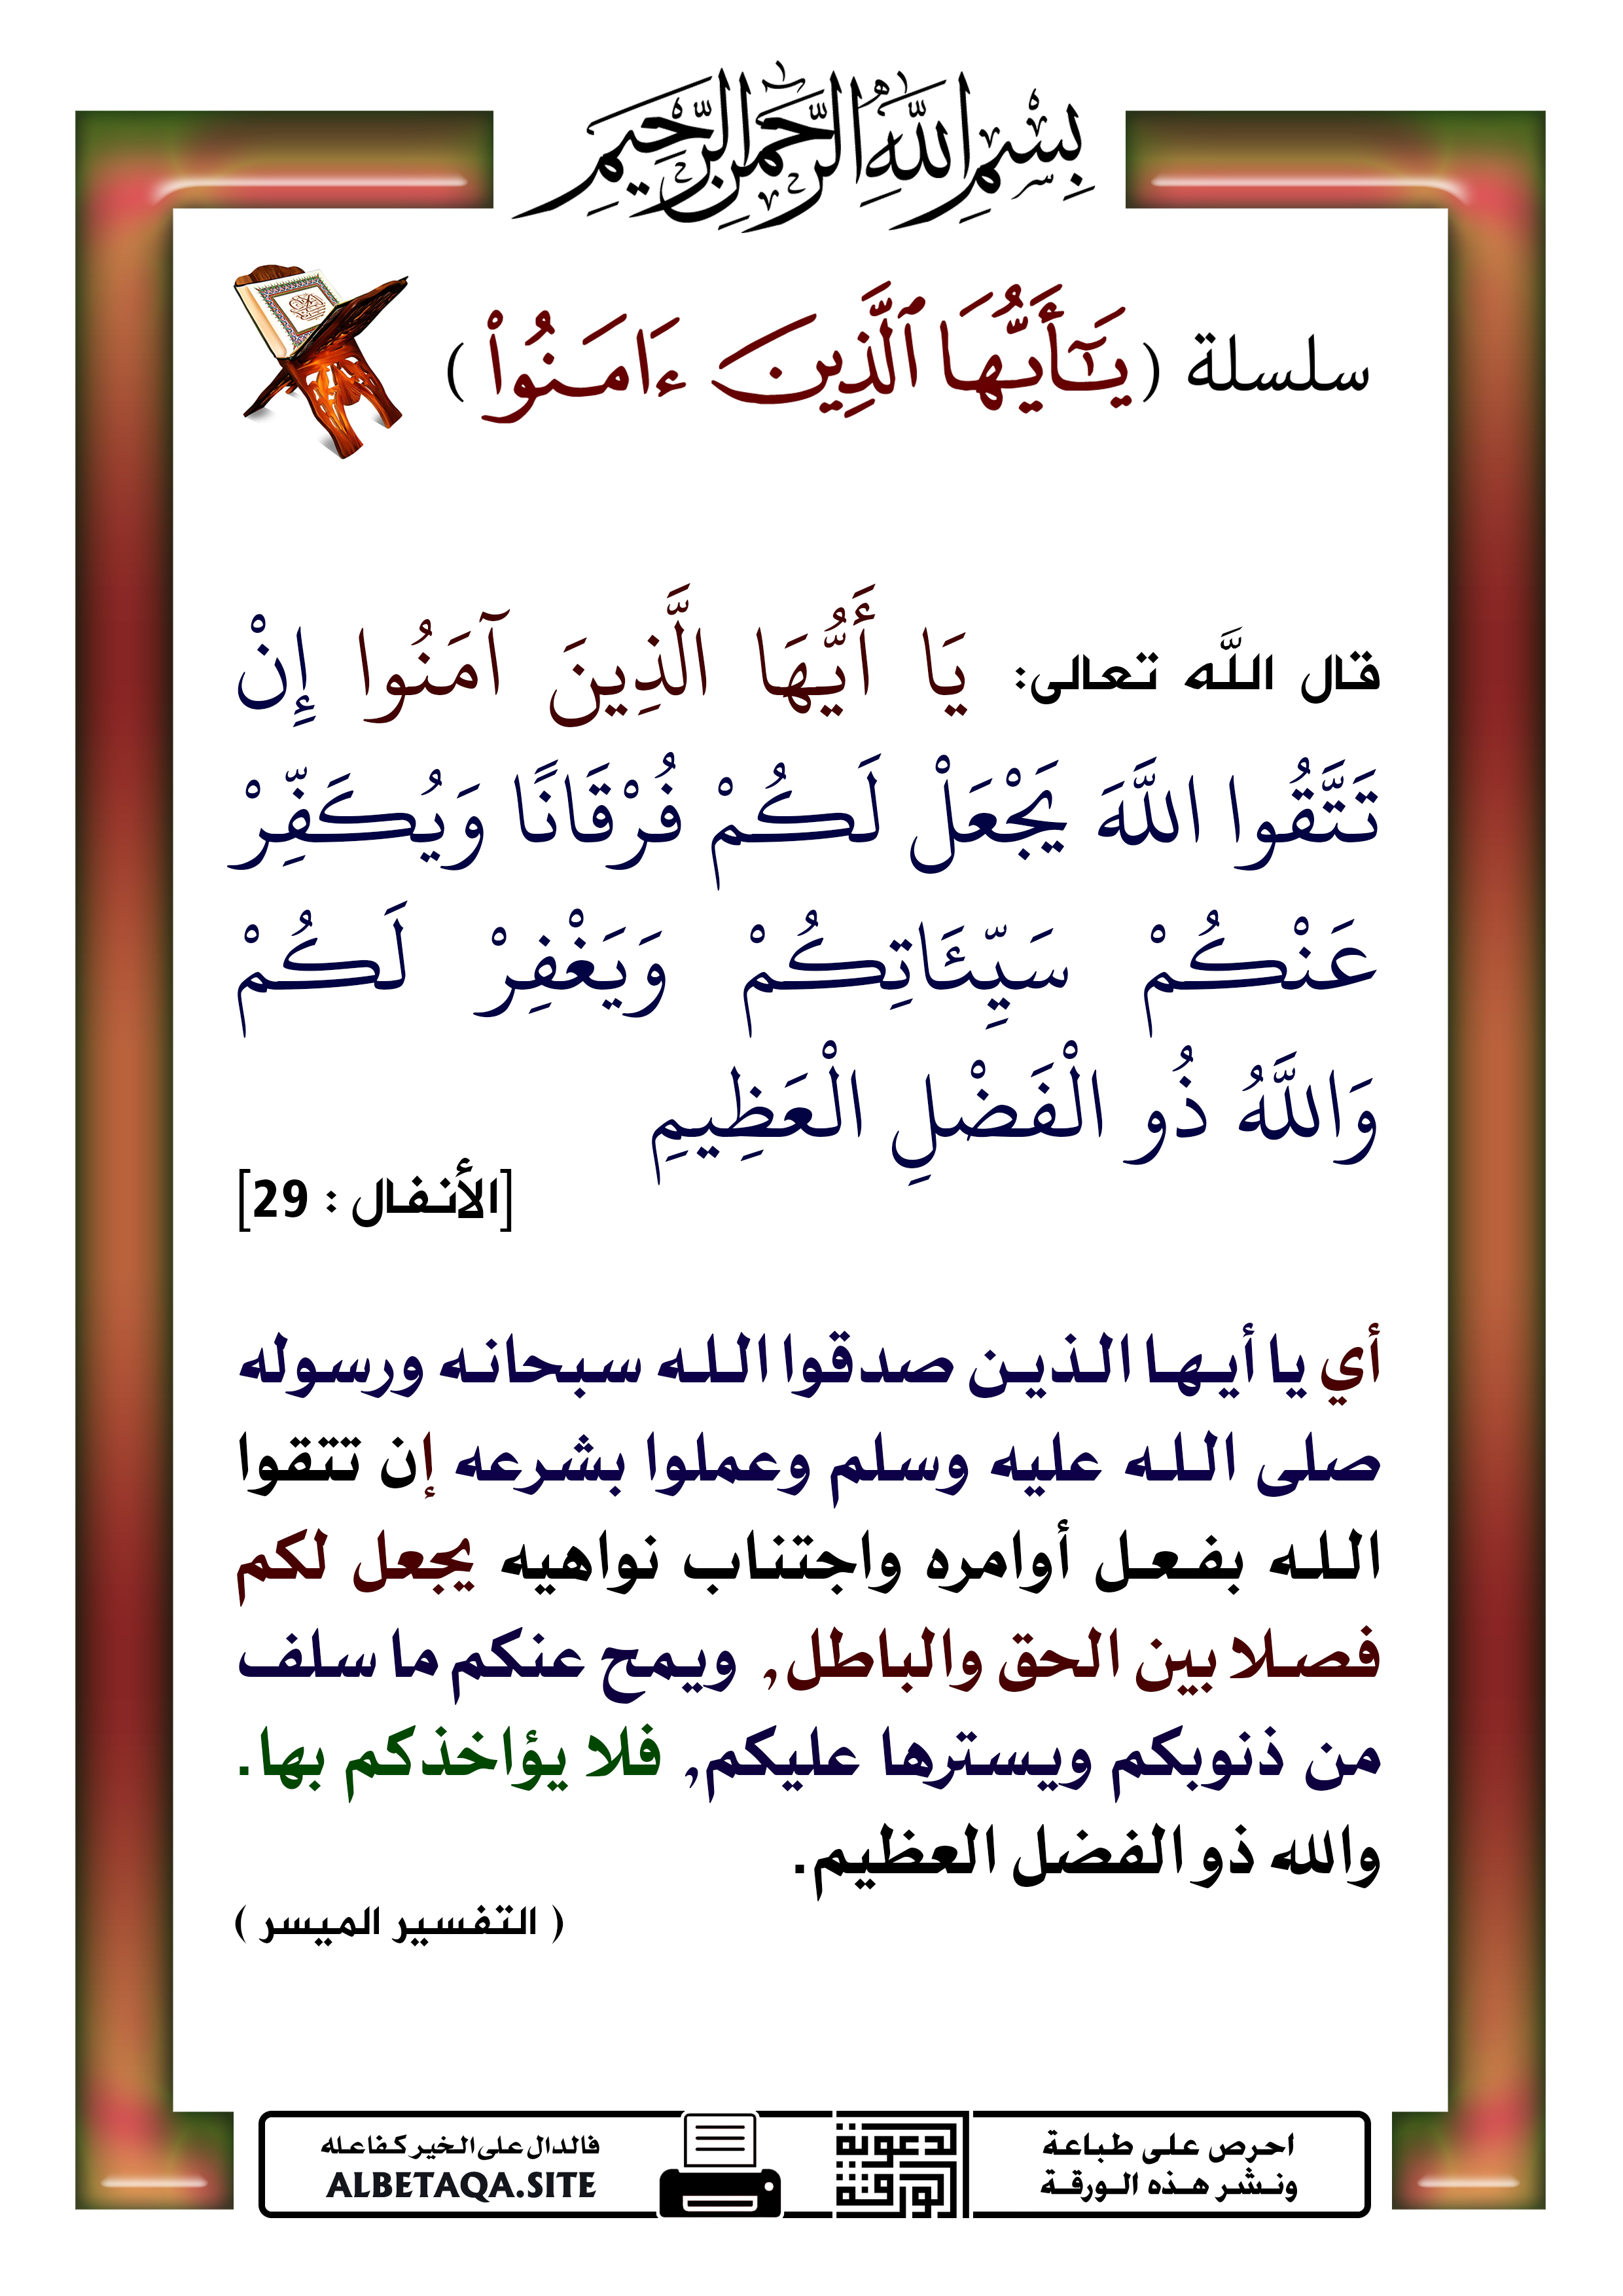 بِسْمِ اللَّهِ الرَّحْمَٰنِ الرَّحِيمِ
سلسلة (يَٰٓأَيُّهَا ٱلَّذِينَ ءَامَنُواْ)
قال اللَّه تعالى: يَا أَيُّهَا الَّذِينَ آمَنُوا إِنْ
تَتَّقُوا اللَّهَ يَجْعَلْ لَكُمْ فُرْقَانًا وَيُكَفِّرْ
عَنْكُمْ سَيِّئَاتِكُمْ وَيَغْفِرْ لَكُمْ
وَاللَّهُ ذُو الْفَضْلِ الْعَظِيمِ
[الأنفال : 29]
أي يا أيها الذين صدقوا الله سبحانه ورسوله
صلى الله عليه وسلم وعملوا بشرعه إن تتقوا
الله بفعل أوامره واجتناب نواهيه يجعل لكم
فصلا بين الحق والباطل, ويمح عنكم ما سلف
من ذنوبكم ويسترها عليكم, فلا يؤاخذكم بها.
والله ذو الفضل العظيم.
( التفسير الميسر )
احرص على طباعة
ونشر هذه الورقة
الدعوية
الورقة
فالدال على الخير كفاعله
ALBETAQA.SITE